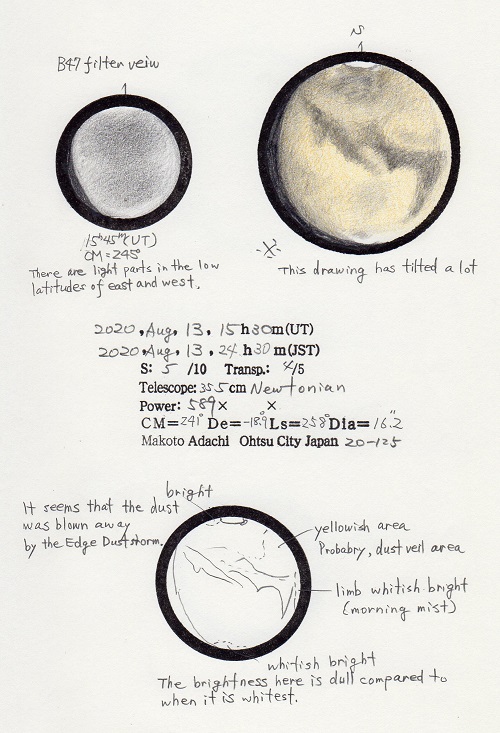 B47 filter veiw
N
15h45m(UT)
CM=245°
There are light parts in the low
latitudes of east and west.
This drawing has tilted a lot
2020, Aug, 13, 15h30m(UT)
2020, Aug, 13, 24h30m(JST)
S: 5 /10 Transp.: 4/5
Telescope: 35.5cm Newtonian
Power: 589× ×
CM=241° De=-18.9° Ls=258° Dia=16.2"
Makoto Adachi Ohtsu City Japan 20-125
bright
It seems that the dust
was blown away
by the Edge Duststorm.
yellowish area
Probabry, dust veil area
limb whitish bright
(morning mist)
whitish bright
The brightness here is dull compared to
when it is whitest.